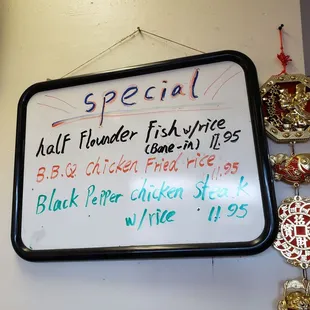 special
half Flounder Fish w/rice
(Bone-in) 11.95
B.B.Q chicken Fried rice
11.95
Black Pepper chicken steak
w/rice 11.95